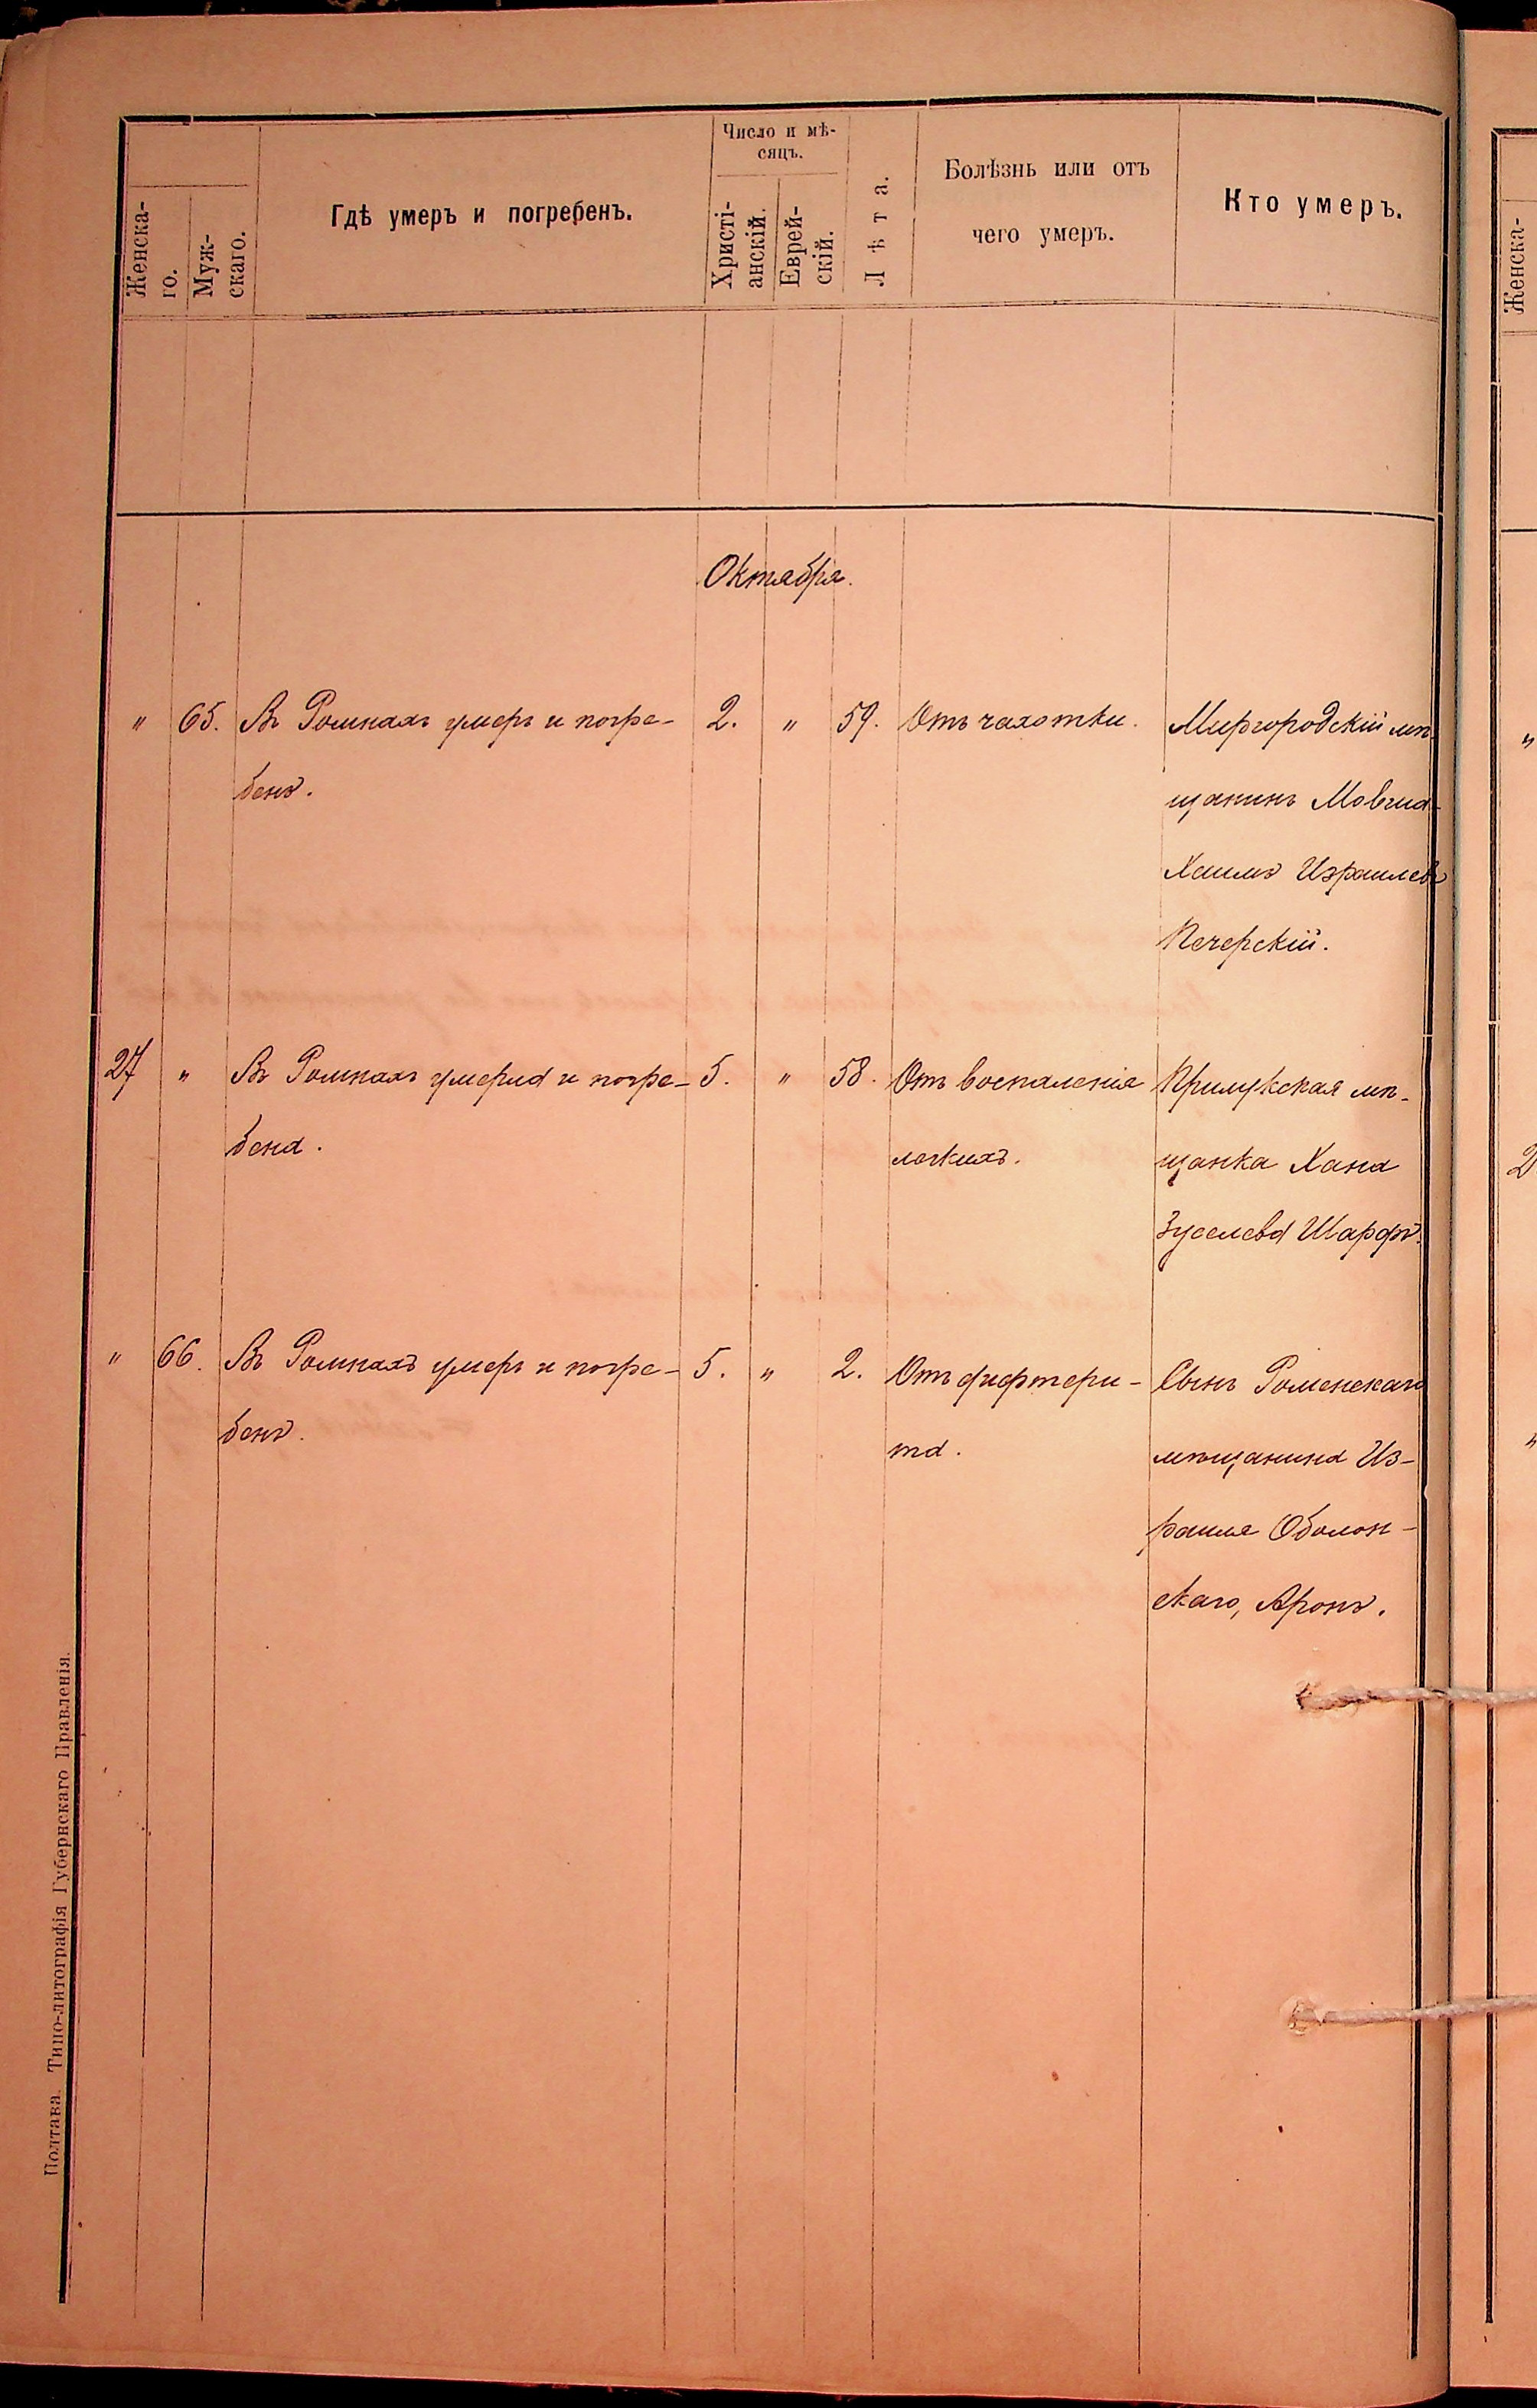 Женска-
го.
Муж-
скаго.
Гдѣ умеръ и погребенъ.
Число и мѣ-
сяцъ.
Христі-
анскій.
Еврей-
скій.
Лѣта.
Болѣзнь или отъ
чего умеръ.
Кто умеръ.
Октября.
" 65. Въ Ромнахъ умеръ и погре- 2. " 59. Отъ чахотки. Миргородскій мѣ-
бенъ. щанинъ Мовша-
Хаимъ Израилевъ
Печерскій.
27 " Въ Ромнахъ умерла и погре- 5. " 58. Отъ воспаленія Прилукская мѣ-
бена. легкихъ. щанка Хана
Зуселева Шарфъ.
" 66. Въ Ромнахъ умеръ и погре- 5. " 2. Отъ дифтери- Сынъ Роменскаго
бенъ. та. мѣщанина Из-
раиля Оболон-
скаго, Аронъ.
Полтава. Типо-литографія Губернскаго Правленія.
Женска-
"
2
"